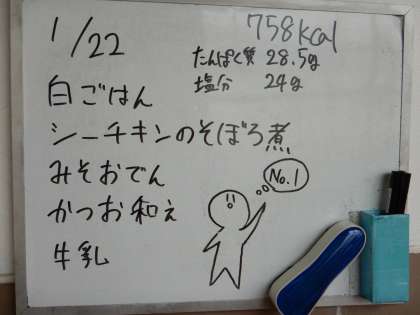 1/22
758kcal
たんぱく質 28.5g
塩分 24g
白ごはん
シーチキンのそぼろ煮
みそおでん
かつお和え
牛乳
No.1